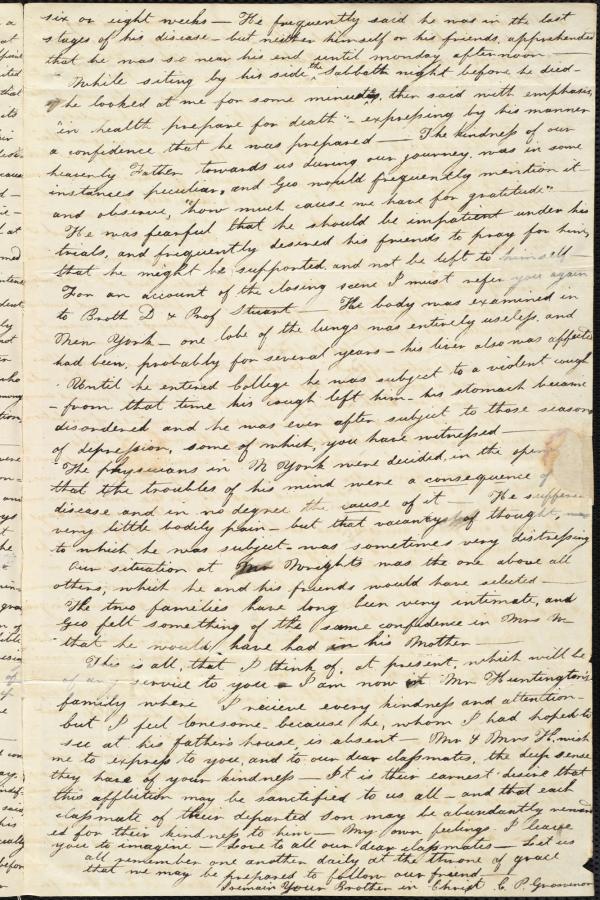 six or eight weeks — He frequently said he was in the last
stages of his disease — but neither himself or his friends, apprehended
that he was so near his end, until monday afternoon —
While siting by his side the Sabbath night before he died —
he looked at me for some minutes, then said with emphasis,
"in health prepare for death" — expressing by his manner
a confidence that he was prepared — The kindness of our
heavenly Father towards us during our journey, was in some
instances peculiar, and Geo would frequently mention it —
and observe, "how much cause we have for gratitude" —
He was fearful that he should be impatient under his
trials, and frequently desired his friends to pray for him,
that he might be supported and not be left to himself —
For an account of the closing scene I must refer you again
to Broth D & Prof Stuart — The body was examined in
New York — one lobe of the lungs was entirely useless, and
had been, probably for several years — his liver also was affected
Until he entered College he was subject to a violent cough
— from that time his cough left him — his stomach became
disordered and he was ever after subject to those seasons
of depression, some of which, you have witnessed —
The physicians in N York were decided, in the
that the troubles of his mind were a consequence of
disease and in no degree the cause of it — He suffered
very little bodily pain — but that vacancy of thought,
to which he was subject — was sometimes very distressing
Our situation at Mr Wrights was the one above all
others, which he and his friends would have selected —
The two families have long been very intimate, and
Geo felt something of the same confidence in Mrs W
that he would have had in his Mother —
This is all, that I think of, at present, which will be
of any service to you — I am now at Mr Huntington's
family where I recieve every kindness and attention —
but I feel lonesome, because he, whom I had hoped to
see at his father's house, is absent — Mr & Mrs H. wish
me to express to you, and to our dear classmates, the deep sense
they have of your kindness — It is their earnest desire that
this affliction may be sanctified to us all — and that each
classmate of their departed son may be abundantly reward
ed for their kindness to him — My own feelings I leave
you to imagine — Love to all our dear classmates — Let us
all remember one another daily at the throne of grace
that we may be prepared to follow our friend —
I remain Your Brother in Christ C. P. Grosvenor